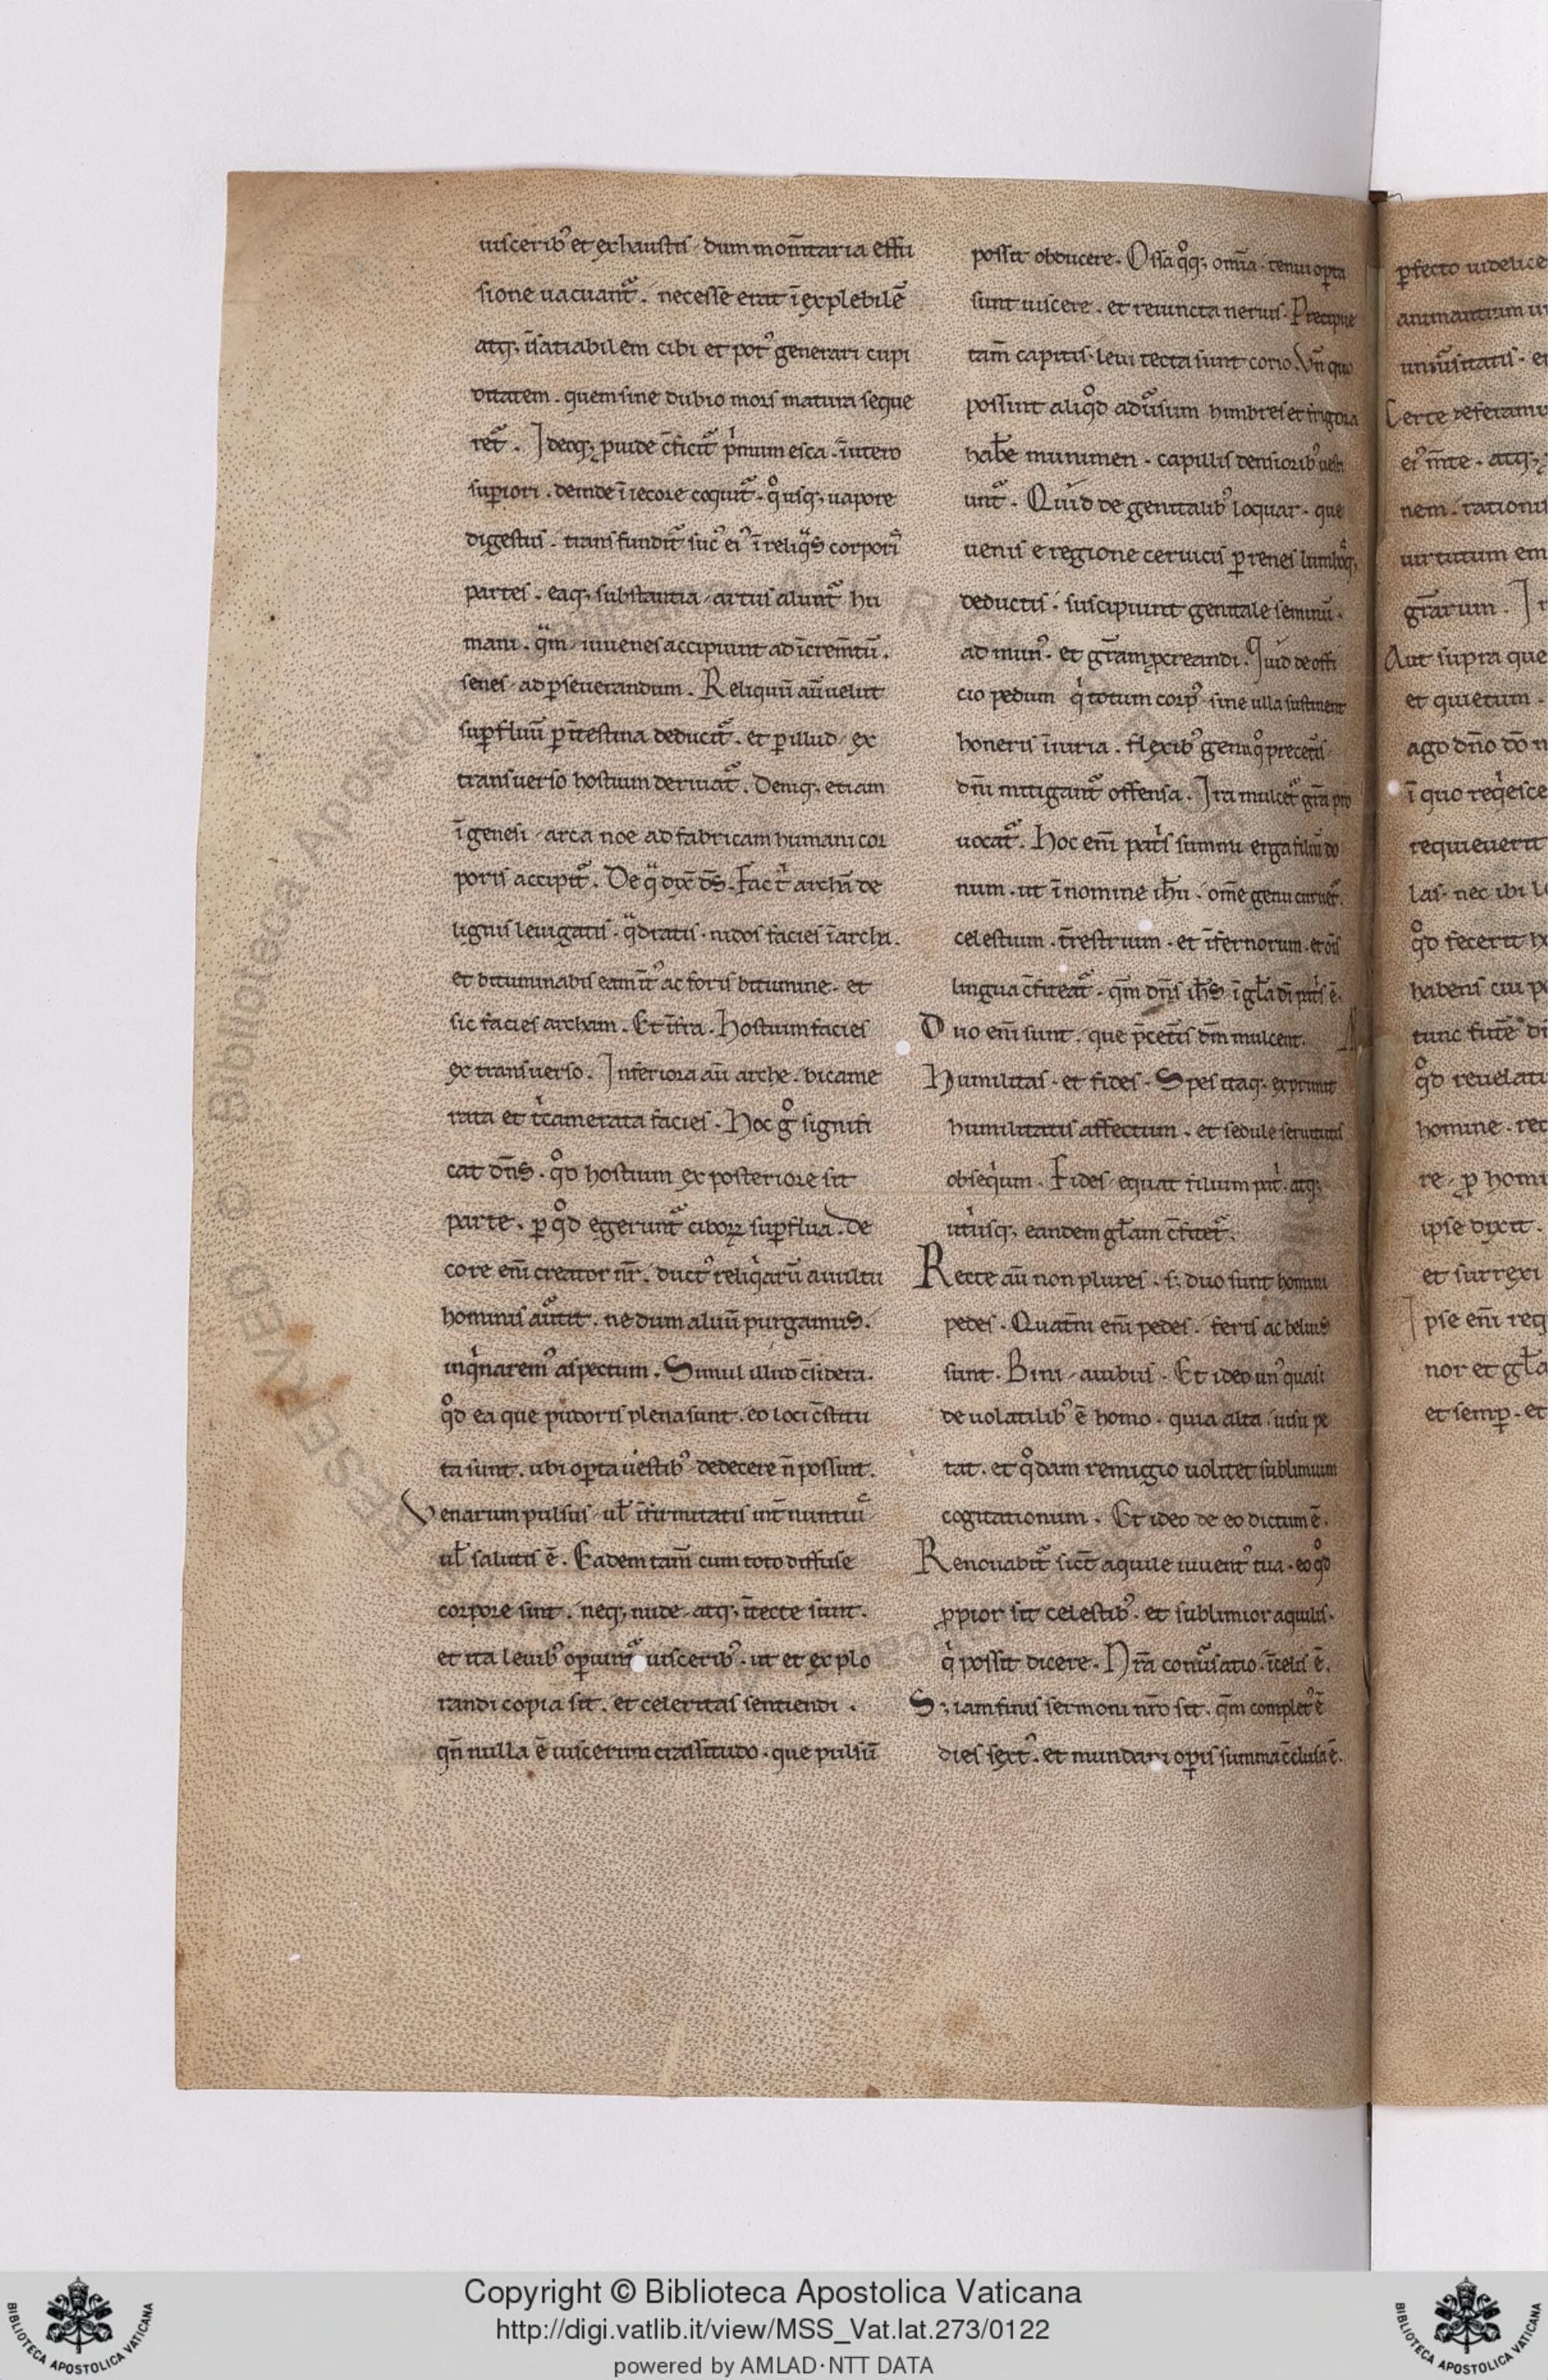 uisceribꝰ et exhaustis dum mom̄taria effu
sione uacuant᷑. necesse erat ı̄explebilē
atq; ı̄satiabilem cibi et potꝰ generari cupi
ditatem. quem sine dubio mors matura seque
ret᷑. Ideoq; ꝓuide c̄ficit᷑ pͥmum esca. ı̄utero
suꝑiori. deinde ı̄ iecore coquit᷑. qͦ usq; uapore
digestus. transfundit᷑ sucꝰ eiꝰ ı̄ reliqͣs corporis
partes. eaq; substantia artus alunt᷑ hu
mani. qm̄ iuuenes accipiunt ad ı̄crem̄tū.
senes ad ꝑseuerandum. Reliquū aū uelut
suꝑfluū ꝑ ı̄testina deducit᷑. et ꝑ illud ex
transuerso hostium deriuat᷑. Deniq; etiam
ı̄ genesi arca noe ad fabricam humani cor
poris accipit᷑. De qͣ dix̄ dS̄. Fac tͥ archā de
lignis leuigatis. qͣdratis. nidos facies ı̄ archa.
et bituminabis eam ı̄tꝰ ac foris bitumine. et
sic facies archam. Et ı̄fra. Hostium facies
ex transuerso. Inferiora aū arche. bicame
rata et tͥcamerata facies. Hoc gͦ signifi
cat dn̄S. qͦd hostium ex posteriore sit
parte. ꝑ qͦd egerunt᷑ ciboꝝ suꝑflua. De
core em̄ creator nr̄. ductꝰ reliqͥarū a uultu
hominis au᷑tit. ne dum aluū purgamus.
inqͥnaremꝰ aspectum. Simul illud c̄sidera.
qͦd ea que pudoris plena sunt. eo loci c̄stitu
ta sunt. ubi oꝑta uestibꝰ dedecere n̄ possunt.
Venarum pulsus ul̄ ı̄firmitatis int̄nuntiꝰ
ul̄ salutis ē. Eadem tam̄ cum toto diffuse
corpore sint. neq; nude atq; ı̄tecte sunt.
et ita leuibꝰ oꝑiunt᷑ uisceribꝰ. ut et explo
randi copia sit. et celeritas sentiendi.
qn̄ nulla ē uiscerum crassitudo. que pulsū
possit obducere. Ossa qͦq; om̄ia. tenui oꝑta
sunt uiscere. et reuincta neruis. Precipue
tam̄ capitis leui tecta sunt corio. Vn̄ quo
possint aliqͦd adu᷑sum himbres et frigora
habe munimen. capillis densioribꝰ uesti
unt᷑. Quid de genitalibꝰ loquar. que
uenis e regione ceruicis ꝑ renes lumbosq;
deductis. suscipiunt genitale seminū.
ad munꝰ. et gr̄am ꝓcreandi. Quid de offi
cio pedum qͥ totum corpꝰ sine ulla sustinent
honeris ı̄iuria. flexibꝰ genu qͦ precet̄is
dn̄i mitigant᷑ offensa. Ira mulcet᷑ gr̄a pro
uocat᷑. Hoc em̄ patͥs summi erga filiū do
num. ut ı̄ nomine ih̄u. om̄e genu curuet᷑.
celestium. t̄restrium. et ı̄fernorum. et oīs
lingua c̄fiteat᷑. qm̄ dn̄s ih̄S ı̄ gl̄a dī patͥs ē.
Duo em̄ sunt. que p̄cet̄is dm̄ mulcent.
Humilitas. et fides. Spes itaq; exprimit
humilitatis affectum. et sedule seruitutis
obseqͥum. Fides equat filium patͥ. atq;
utͥusq; eandem gl̄am c̄fitet᷑.
Recte aū non plures. s; duo sunt homini
pedes. Quat̄ni em̄ pedes. feris ac beluis
sunt. Bini auibus. Et ideo unꝰ quasi
de uolatilibꝰ ē homo. quia alta uisu pe
tat. et qͦdam remigio uolitet sublimium
cogitationum. Et ideo de eo dictum ē.
Renouabit᷑ sic̄t aquile iuuentꝰ tua. eo qͦd
ꝓpior sit celestibꝰ. et sublimior aquilis.
qͥ possit dicere. Nr̄a conu᷑satio. ı̄ celis ē.
S; iam finis sermoni nr̄o sit. qm̄ completꝰ ē
dies sextꝰ. et mundani oꝑis summa c̄clusa ē.
ꝑfecto uidelice
animantium
Certe deferamu
ei᷑ m̄te. atq;
nem. rationis
uirtutum em
gr̄arum.
Aut supra que
et quietum.
ago dn̄o dō n
ı̄ quo reqͥesce
requieuerit
las. nec ibi
qͦd fecerit
habens cui
tunc fut̄e
qͦd reuelati
homine. req
re. ꝑ homi
ipse dixit.
et surrexi
Ipse em̄ req
nor et gl̄a
et semꝑ. et
© Biblioteca Apostolica Vaticana
Copyright © Biblioteca Apostolica Vaticana
http://digi.vatlib.it/view/MSS_Vat.lat.273/0122
powered by AMLAD·NTT DATA
BIBLIOTECA APOSTOLICA VATICANA
BIBLIOTECA APOSTOLICA VATICANA